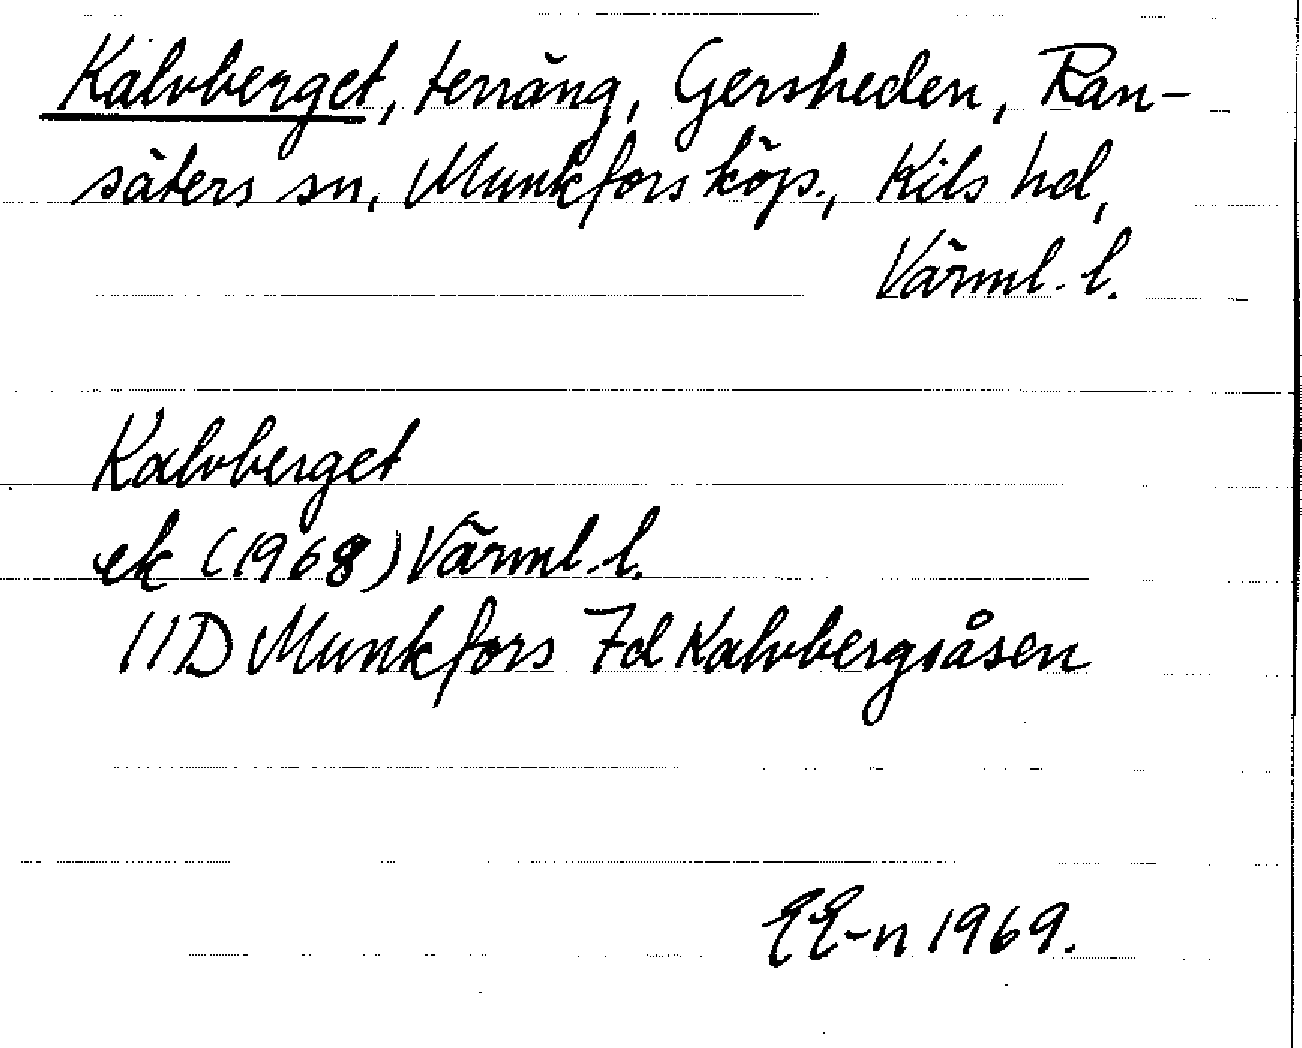 Kalvberget, terräng, Gersheden, Ran-
säters sn, Munkfors köp., Kils hd,
Värml. l.
Kalvberget
ek (1968) Värml. l.
11D Munkfors 7d Kalvbergsåsen
EE-n 1969.